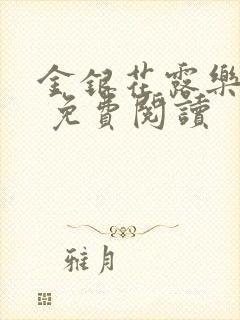 金銀花露樂
免費閱讀
雅月